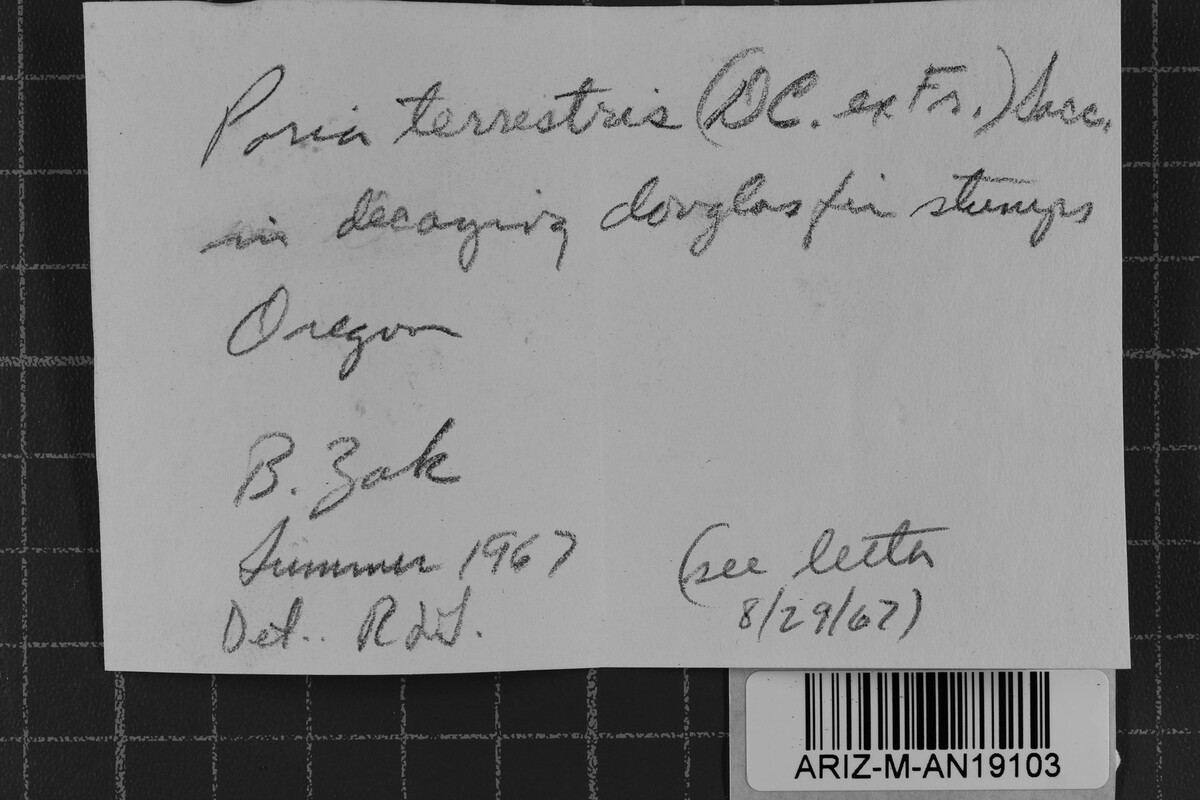 Poria terrestris (DC. ex Fr.) Sacc.
in decaying douglas fir stumps
Oregon
B. Zak
Summer 1967
(see letter
8/29/67)
Det. RLG.
ARIZ-M-AN19103